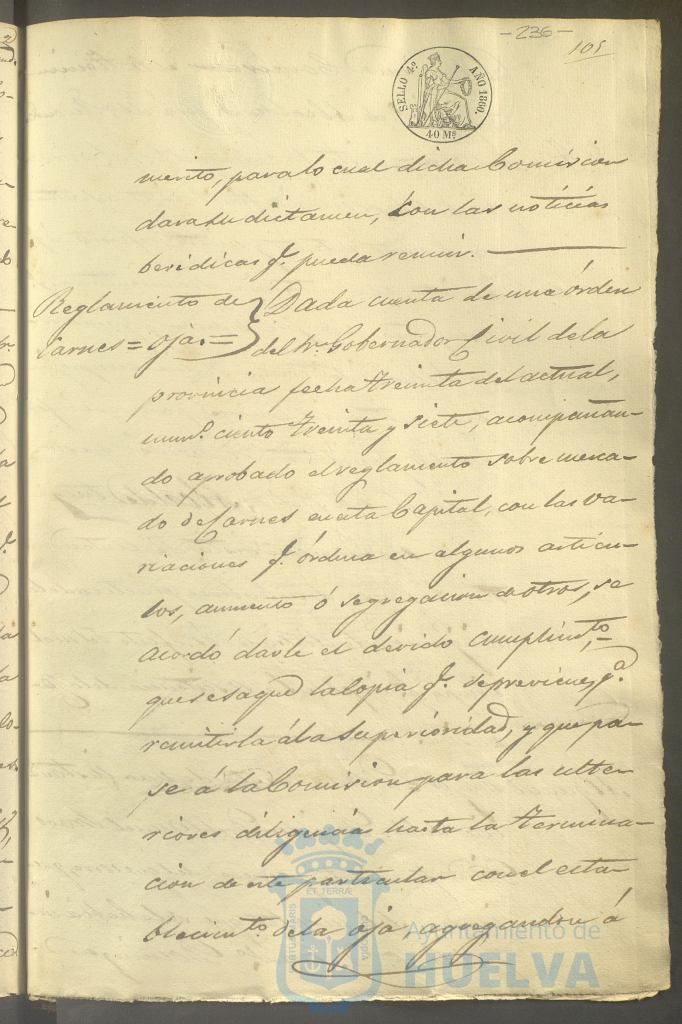 -236-
105
SELLO 4º AÑO 1860.
40 Mˢ
miento, para lo cual dicha Comision
dara su dictamen, con las noticias
beridicas q.e pueda reunir.
Reglamento de
Carnes = oja =
Dada cuenta de una órden
del Sr. Gobernador Civil de la
provincia fecha treinta del actual,
num.º ciento treinta y siete, acompañan-
do aprobado el reglamento sobre merca-
do de Carnes en esta Capital, con las va-
riaciones q.e órdena en algunos articu-
los, aumento ó segregacion de otros, se
acordó darle el devido cumplim.to,
que se saque la copia q.e se previene, p.a
remitirla á la Superióridad, y que pa-
se á la Comision para las ulte-
riores diligencias hasta la termina-
cion de este particular con el esta-
blecim.to de la oja, agregandose á
Ayuntamiento de
HUELVA